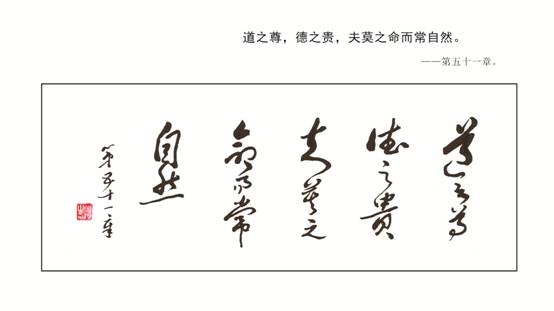 道之尊，德之贵，夫莫之命而常自然。
——第五十一章。
道之尊
德之貴
夫莫之
命而常
自然
第五十一章